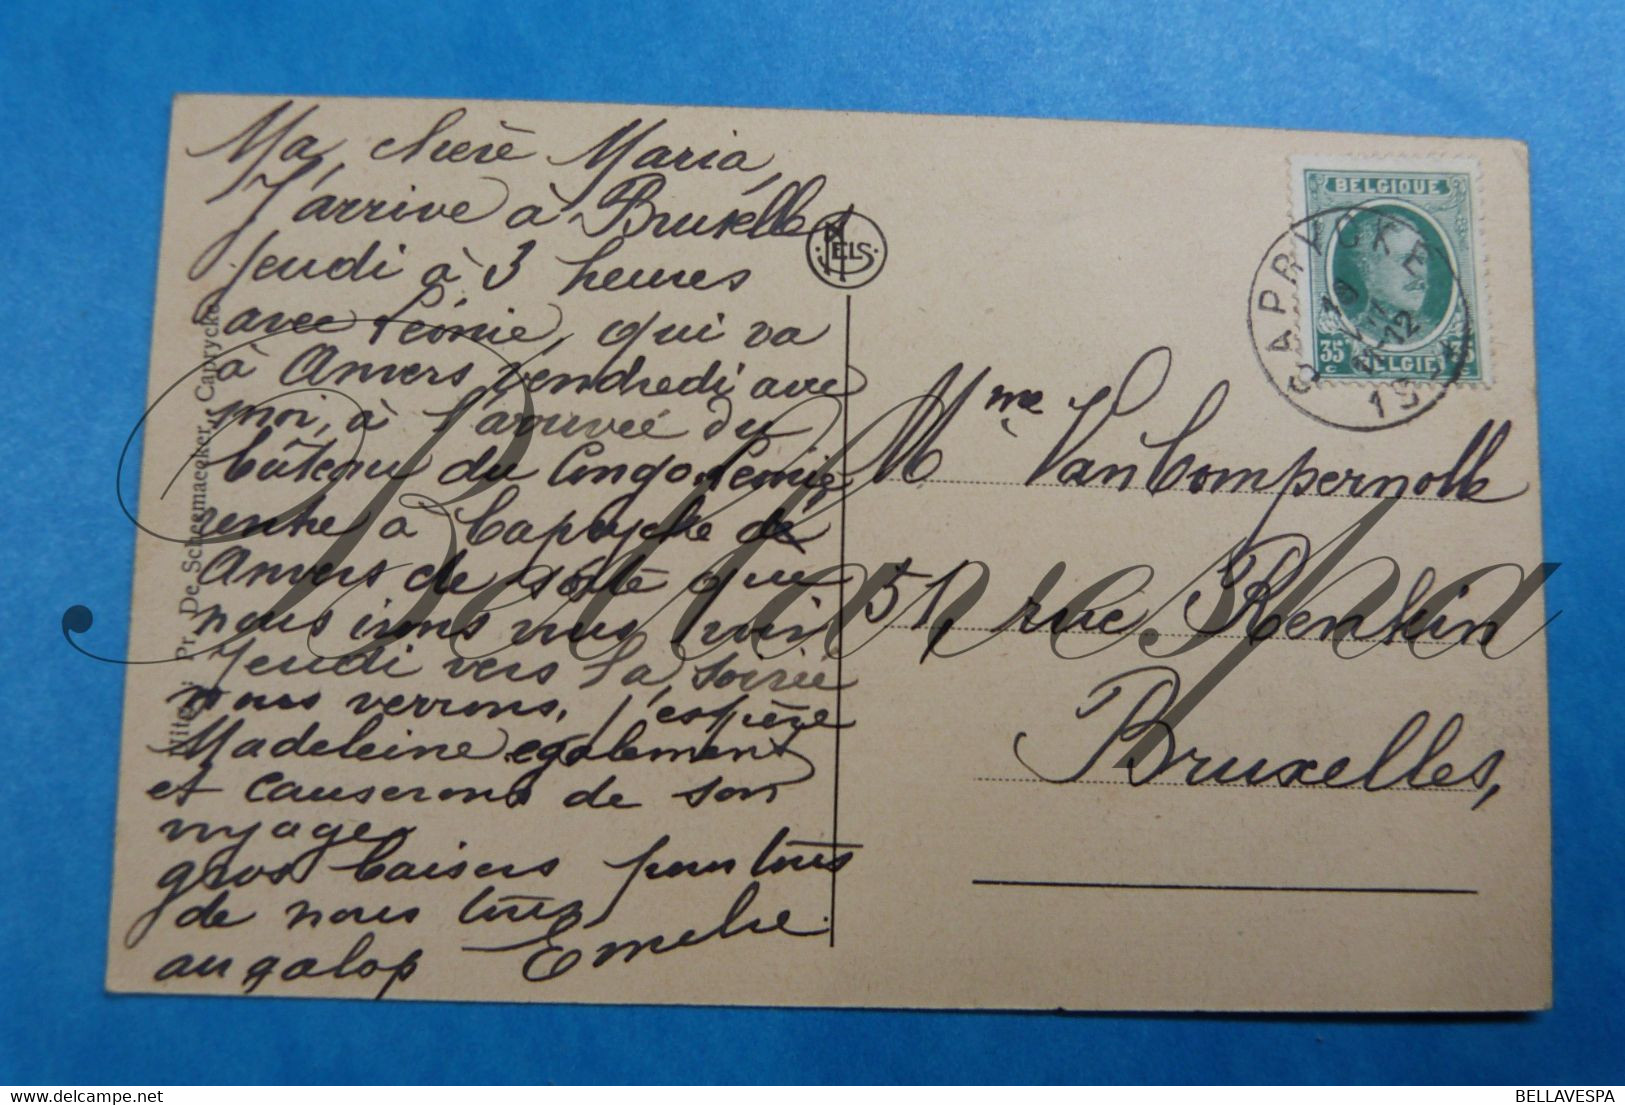 Ma chère Maria,
J'arrive à Bruxelles
jeudi à 3 heures
avec Léonie, qui va
à Anvers vendredi avec
moi, à l'arrivée du
bâteau du Congo. Léonie
rentre à Caprycke de
Anvers de sorte que
nous irons vous voir
jeudi vers la soirée
nous verrons, j'espère
Madeleine egalement
et causerons de son
voyage,
gros baisers pour tous
de nous tous
au galop Emelie.
NELS
Pr. De Scheemaecker, Caprycke
BELGIQUE
35 c
BELGIË
CAPRYCKE
Mme Van Compernolle
51, rue Renkin
Bruxelles,
Bellavespa
BELLAVESPA